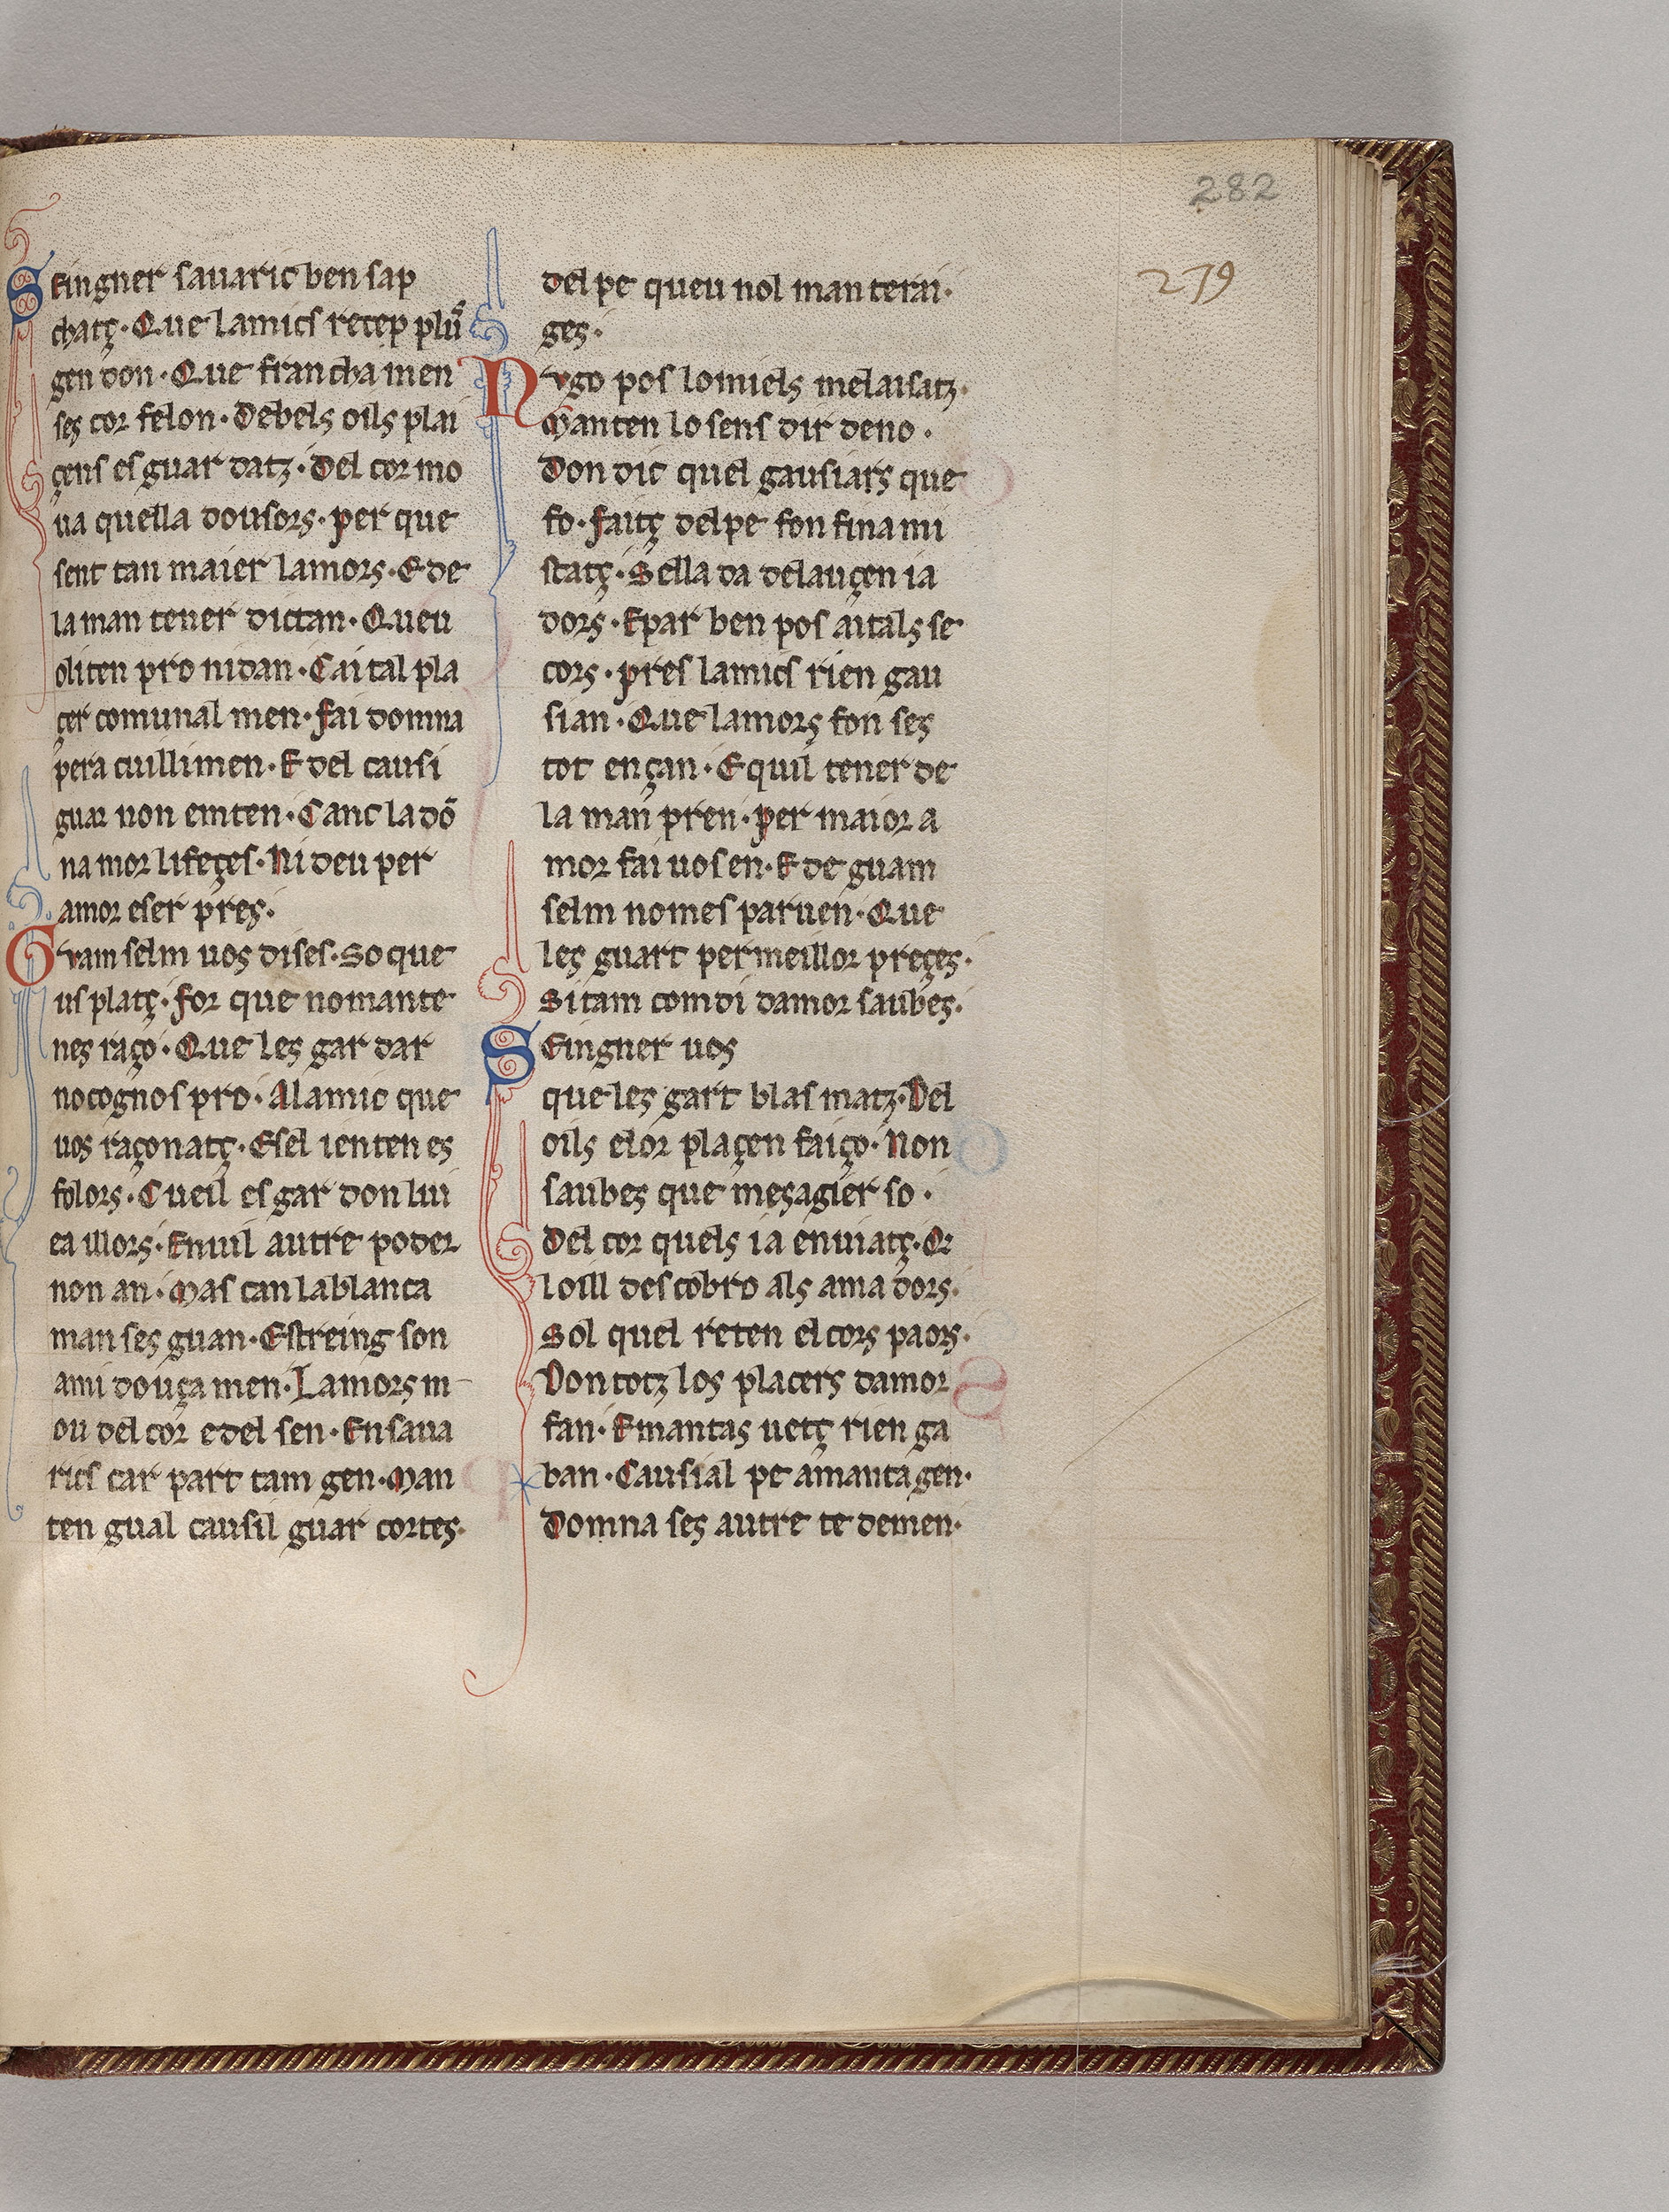 282
279
Seingner sauaric ben sap
chatç · Que lamics recep plū
gen don · Que francha men
ses cor felon · Debels oils plai
çens esguar datz · Del cor mo
ua quella dousors · per que
sent tan maier lamors · E de
la man tener dictan · Queu
oliten pro nidan · Cai tal pla
cer comunal men · fai domna
pera cuillimen · E del causi
guar non emten · Canc la dō
na mor lifeçes · Ni deu per
amor eser pres ·
Guam selm uos dises · So que
us platç · for que nomante
nes raço · Que les gar dar
no cognos pro · Al amic que
uos raçonatç · Esel ienten es
folors · Cueil es gar don lui
ea illors · Enuil autre poder
non an · Mas can la blanca
man ses guan · Estreing son
ami douça men · Lamors m
ou del cor e del sen · En saua
rics car part tam gen · Man
ten gual causil guar cortes ·
del pe queu nol manterai ·
ges ·
Nvgo pos lomiels melaisatz ·
Manten lo sens dir de no ·
Don dic quel gausiars que
fo · faitç del pe fon fina mi
statç · Sella da delauçen ia
dors · Epar ben pos aitals se
cors · pres lamics rien gau
sian · Que lamors fon ses
tot ençan · E quil tener de
la man pren · per maior a
mor fai uos en · E de guam
selm nomes paruen · Que
les guart per meillor preçes ·
Si tam com di damor saubes ·
Seingner uos
que les gart blas matz · Del
oils elor plaçen faiço · Non
saubes que mesagier so ·
Del cor quels i a enuiatç · Q̄r
loill des cobro als ama dors ·
Sol quel reten el cors paors ·
Don totz los placers damor
fan · E mantas uetç rien ga
ban · Causial pe amanta gen ·
Domna ses autre te demen ·